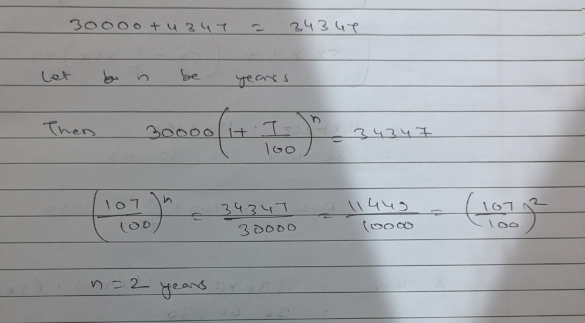 30000 + 4347 = 34347
Let n be years
Then 30000 (1 + 7/100)^n = 34347
(107/100)^n = 34347/30000 = 11449/10000 = (107/100)^2
n = 2 years